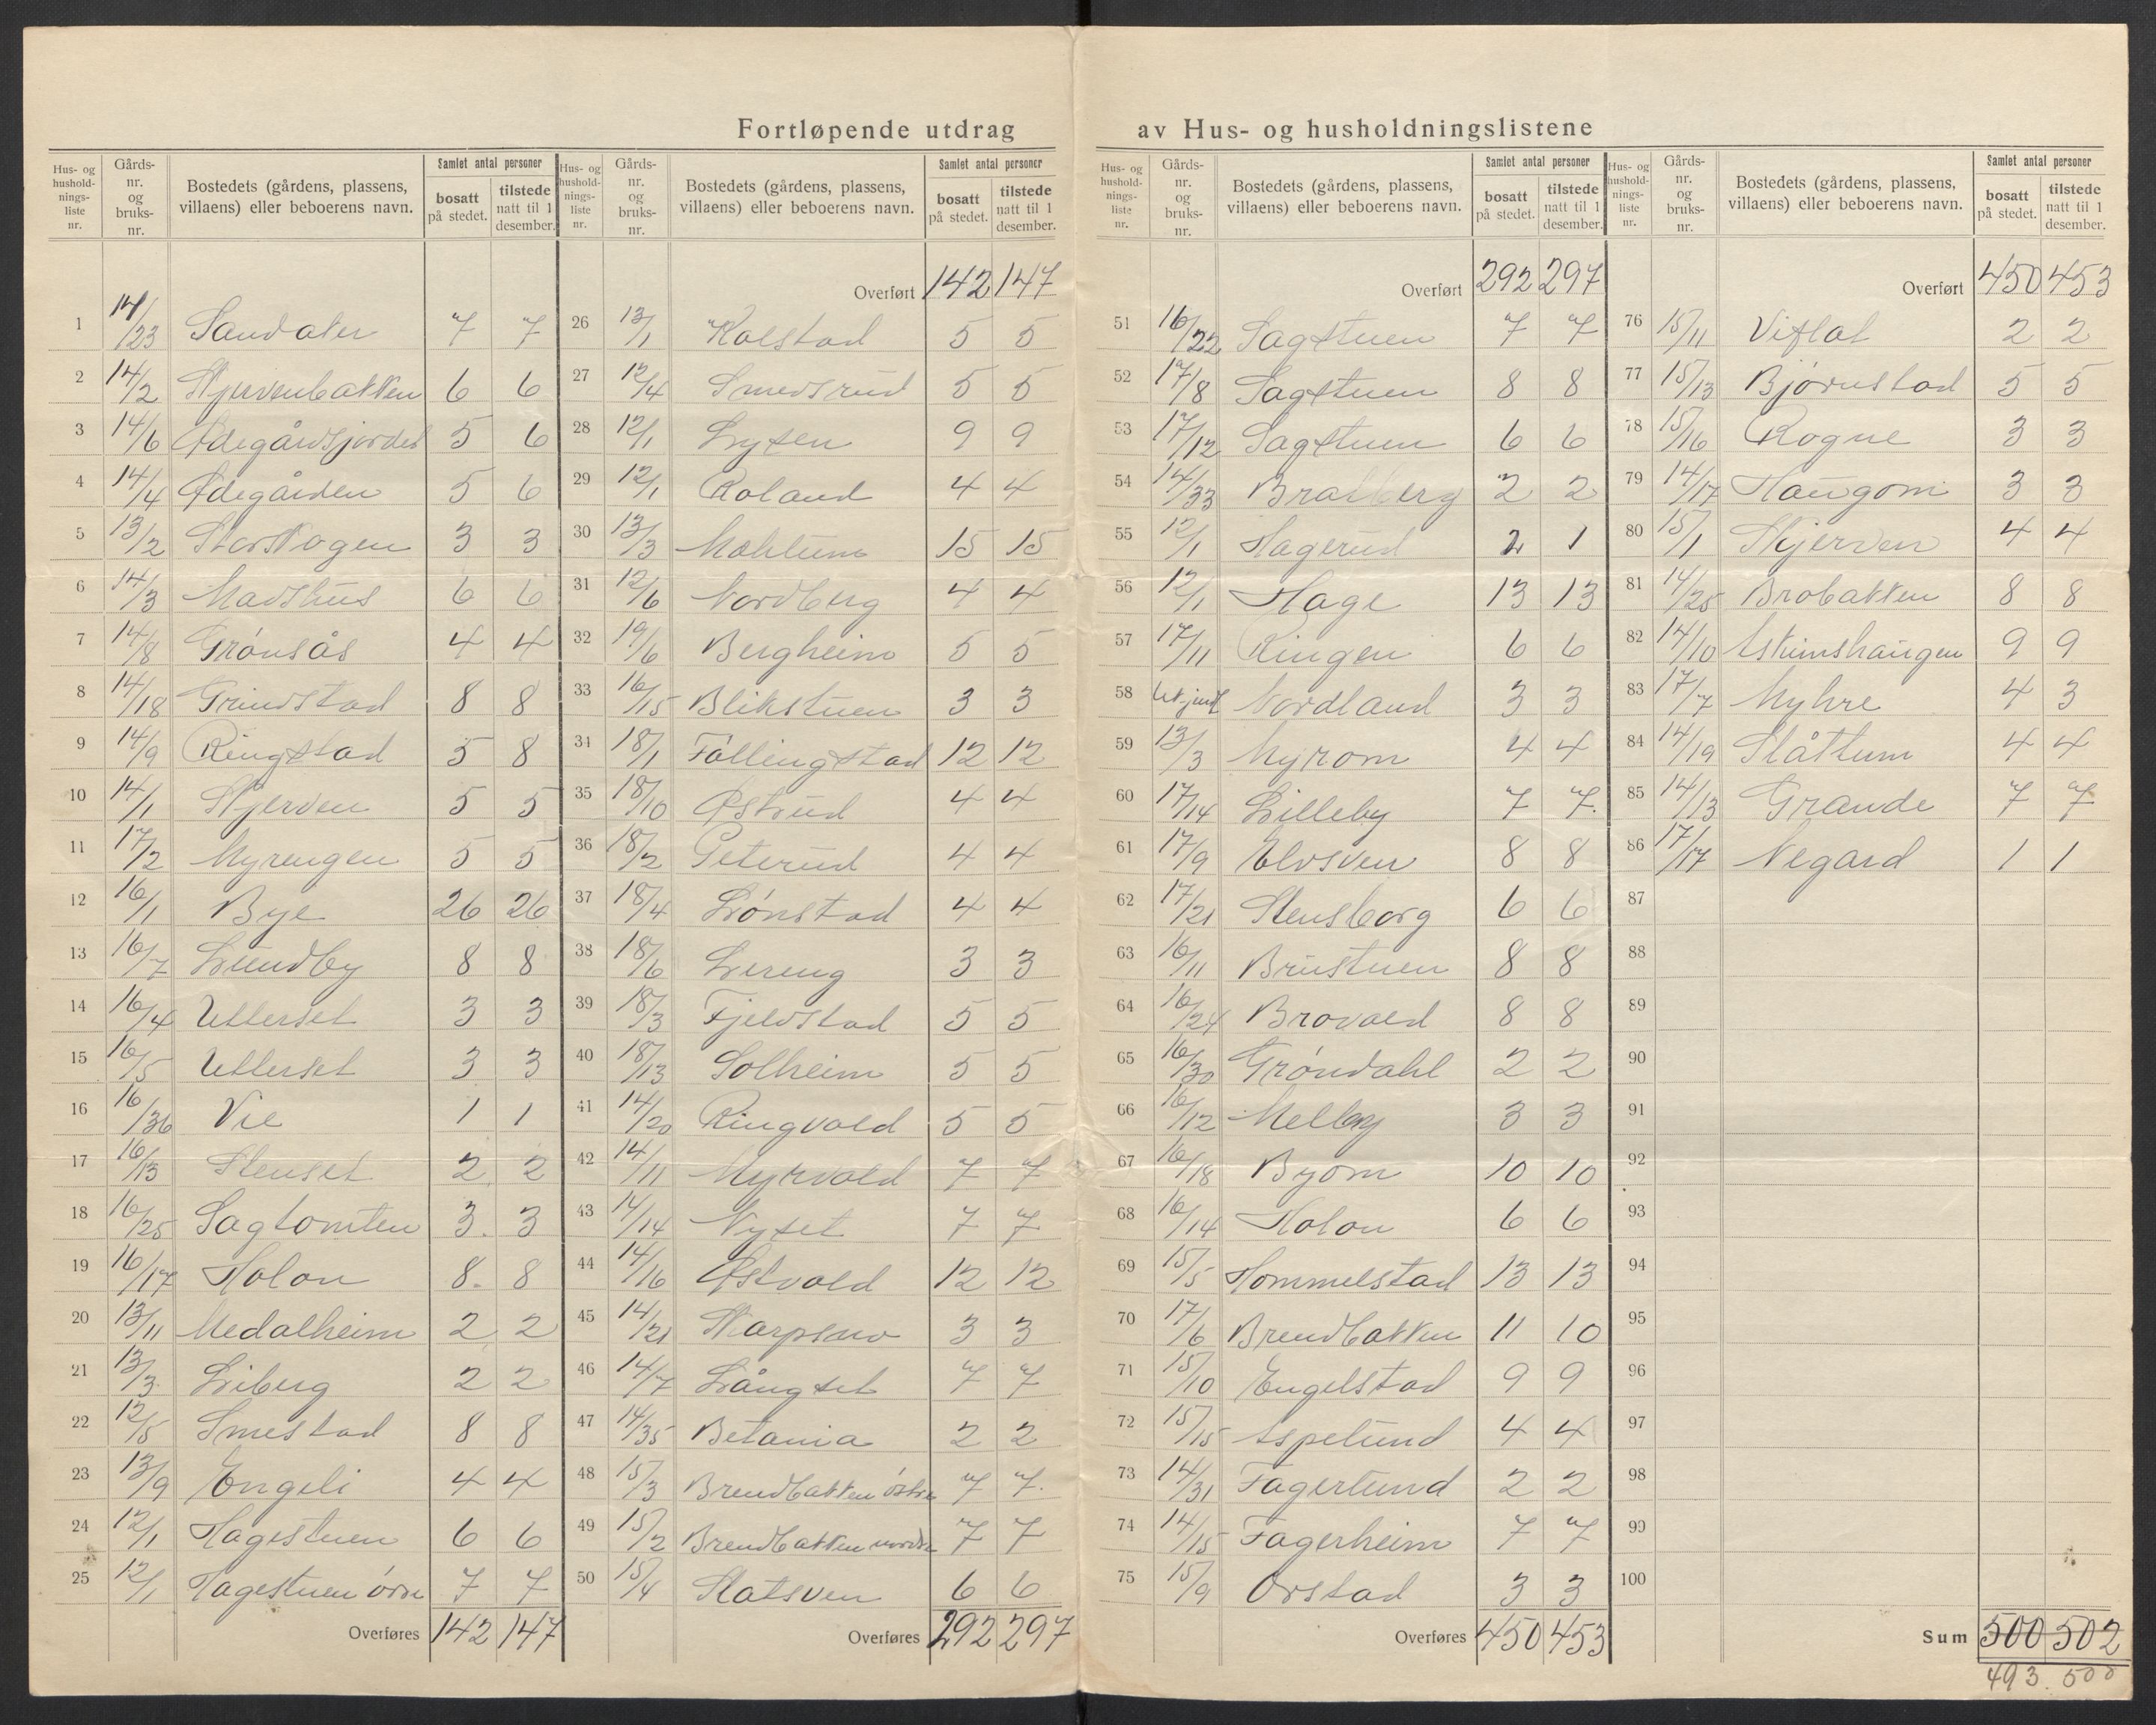 Fortløpende utdrag av Hus- og husholdningslistene
Hus- og hushold-nings-liste nr. | Gårds-nr. og bruks-nr. | Bostedets (gårdens, plassens, villaens) eller beboerens navn. | Samlet antal personer | bosatt på stedet. | tilstede natt til 1 desember.
1 14/23 Sandaker 7 7
2 14/2 Skjervenbakken 6 6
3 14/6 Ødegårdsjordet 5 6
4 14/4 Ødegården 5 6
5 13/2 Storskogen 3 3
6 14/3 Madshus 6 6
7 14/8 Grønsås 4 4
8 14/18 Grindstad 8 8
9 14/9 Ringstad 5 8
10 14/1 Skjerven 5 5
11 17/2 Myrengen 5 5
12 16/1 Bye 26 26
13 16/7 Lundby 8 8
14 16/4 Ullerset 3 3
15 16/5 Ullerset 3 3
16 16/36 Vie 1 1
17 16/13 Stenset 2 2
18 16/25 Sagtomten 3 3
19 16/17 Holon 8 8
20 13/11 Medalheim 2 2
21 13/3 Liberg 2 2
22 12/5 Smestad 8 8
23 13/9 Engeli 4 4
24 12/1 Hagestuen 6 6
25 12/1 Hagestuen øvre 7 7
Overføres 142 147
Hus- og hushold-nings-liste nr. | Gårds-nr. og bruks-nr. | Bostedets (gårdens, plassens, villaens) eller beboerens navn. | Samlet antal personer | bosatt på stedet. | tilstede natt til 1 desember.
Overført 142 147
26 13/1 Kolstad 5 5
27 12/4 Smedsrud 5 5
28 12/1 Lysen 9 9
29 12/1 Roland 4 4
30 13/3 Mahlum 15 15
31 12/6 Nordberg 4 4
32 19/6 Bergheim 5 5
33 16/15 Blikstuen 3 3
34 18/1 Føllingstad 12 12
35 18/10 Østrud 4 4
36 18/2 Peterud 4 4
37 18/4 Lønstad 4 4
38 18/6 Lereng 3 3
39 18/3 Fjeldstad 5 5
40 18/13 Solheim 5 5
41 14/20 Ringvold 5 5
42 14/11 Myrvold 7 7
43 14/14 Nyset 7 7
44 14/16 Østvold 12 12
45 14/21 Skarpsno 3 3
46 14/7 Långset 7 7
47 14/35 Betania 2 2
48 15/3 Brendbakken østre 7 7
49 15/2 Brendbakken nordre 7 7
50 15/4 Slatsven 6 6
Overføres 292 297
Hus- og hushold-nings-liste nr. | Gårds-nr. og bruks-nr. | Bostedets (gårdens, plassens, villaens) eller beboerens navn. | Samlet antal personer | bosatt på stedet. | tilstede natt til 1 desember.
Overført 292 297
51 16/22 Sagstuen 7 7
52 17/8 Sagstuen 8 8
53 17/12 Sagstuen 6 6
54 14/33 Bratberg 2 2
55 12/1 Hagerud 2 1
56 12/1 Hage 13 13
57 17/11 Ringen 6 6
58 Nordland 3 3
59 13/3 Myrom 4 4
60 17/14 Lilleby 7 7.
61 17/9 Elvsven 8 8
62 17/21 Stensborg 6 6
63 16/11 Brustuen 8 8
64 16/24 Brovold 8 8
65 16/30 Grøndahl 2 2
66 16/12 Melby 3 3
67 16/18 Byom 10 10
68 16/14 Holon 6 6
69 15/5 Hommelstad 13 13
70 17/6 Brendbakken 11 10
71 15/10 Engelstad 9 9
72 15/15 Aspelund 4 4
73 14/31 Fagerlund 2 2
74 14/15 Fagerheim 7 7
75 15/9 Orstad 3 3
Overføres 450 453
Hus- og hushold-nings-liste nr. | Gårds-nr. og bruks-nr. | Bostedets (gårdens, plassens, villaens) eller beboerens navn. | Samlet antal personer | bosatt på stedet. | tilstede natt til 1 desember.
Overført 450 453
76 15/11 Viflat 2 2
77 15/13 Bjørnstad 5 5
78 15/16 Rogne 3 3
79 14/17 Haugom 3 3
80 15/1 Skjerven 4 4
81 14/25 Brobakken 8 8
82 14/10 Askimshaugen 9 9
83 17/7 Myhre 4 3
84 14/19 Slåttum 4 4
85 14/13 Grande 7 7
86 17/17 Negard 1 1
87
88
89
90
91
92
93
94
95
96
97
98
99
100
Sum 500 502
493. 500